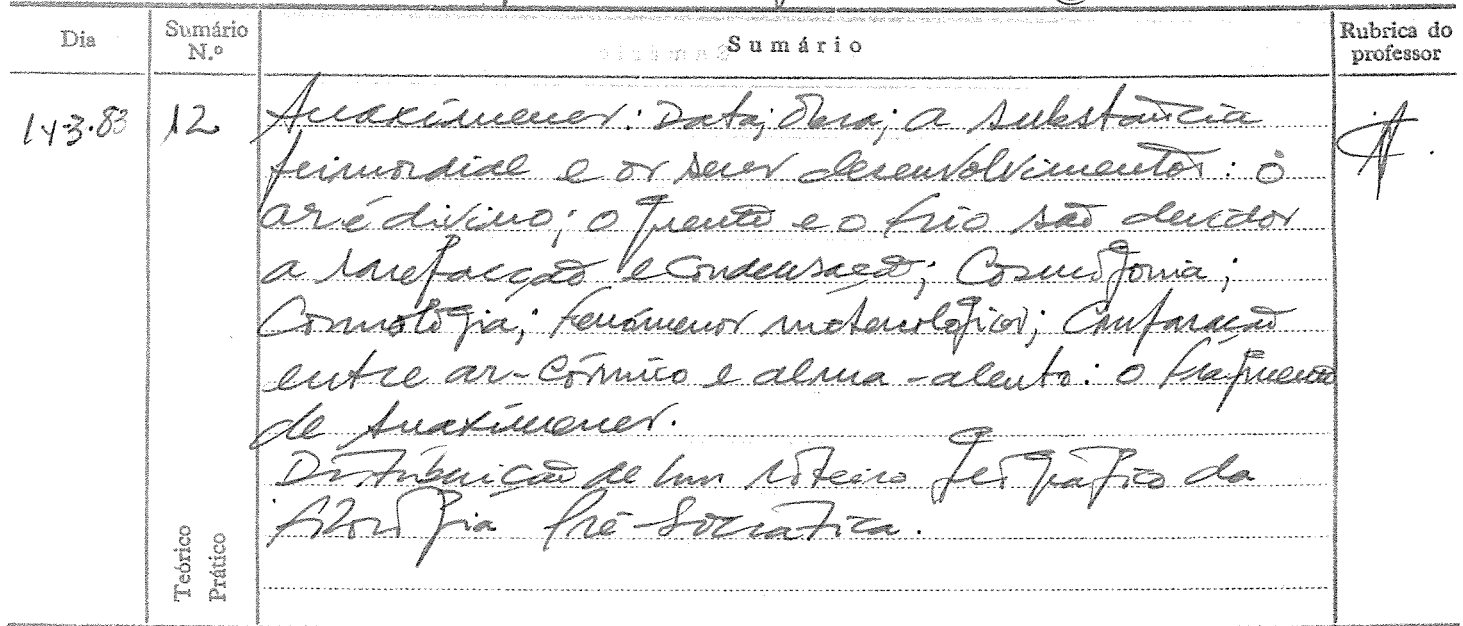 Dia
Sumário N.º
Sumário
Rubrica do professor
14-3-83
12
Anaxímenes: Data; Obra; a substância
primordial e os seus desenvolvimentos: o
ar é divino; o quente e o frio são devidos
a rarefacção e condensação; Cosmogonia;
Cosmologia; fenómenos meteorológicos; Comparação
entre ar-cósmico e alma-alento: o fragmento
de Anaxímenes.
Distribuição de um roteiro geográfico da
filosofia pré-Socrática.
Teórico
Prático